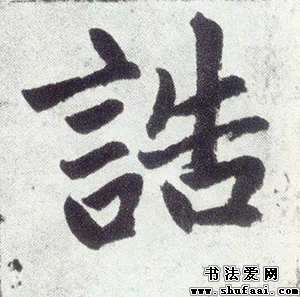 誥
书法爱网
www.shufaai.com